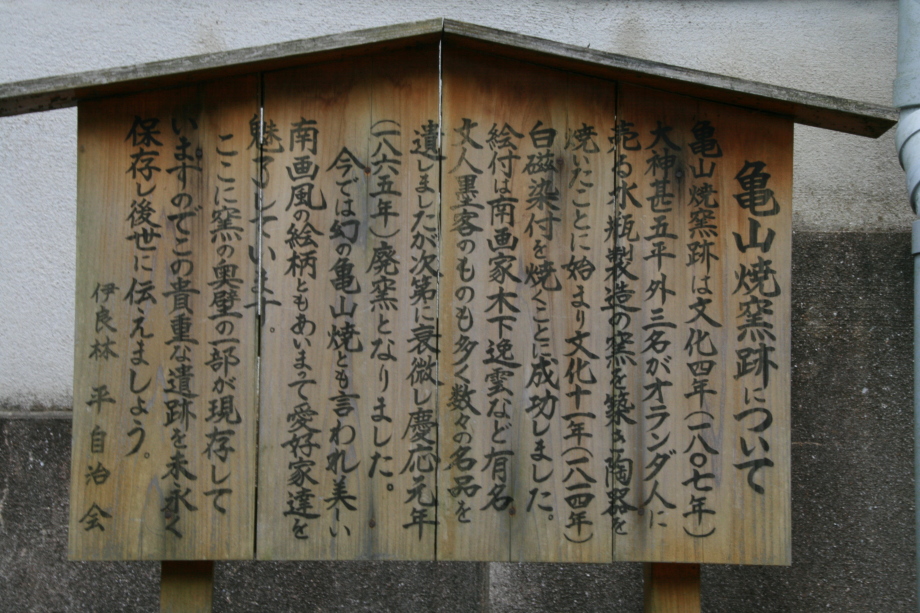 亀山焼窯跡について
亀山焼窯跡は文化四年(一八〇七年)
大神甚五平外三名がオランダ人に
売る水瓶製造の窯を築き陶器を
焼いたことに始まり文化十一年(一八一四年)
白磁染付を焼くことに成功しました。
絵付は南画家木下逸雲など有名
文人墨客のものも多く数々の名品を
遺しましたが次第に衰微し慶応元年
(一八六五年)廃窯となりました。
今では幻の亀山焼とも言われ美しい
南画風の絵柄ともあいまて愛好家達を
魅了しています。
ここに窯の奥壁の一部が現存して
いますのでこの貴重な遺跡を末永く
保存し後世に伝えましょう。
伊良林 平自治会